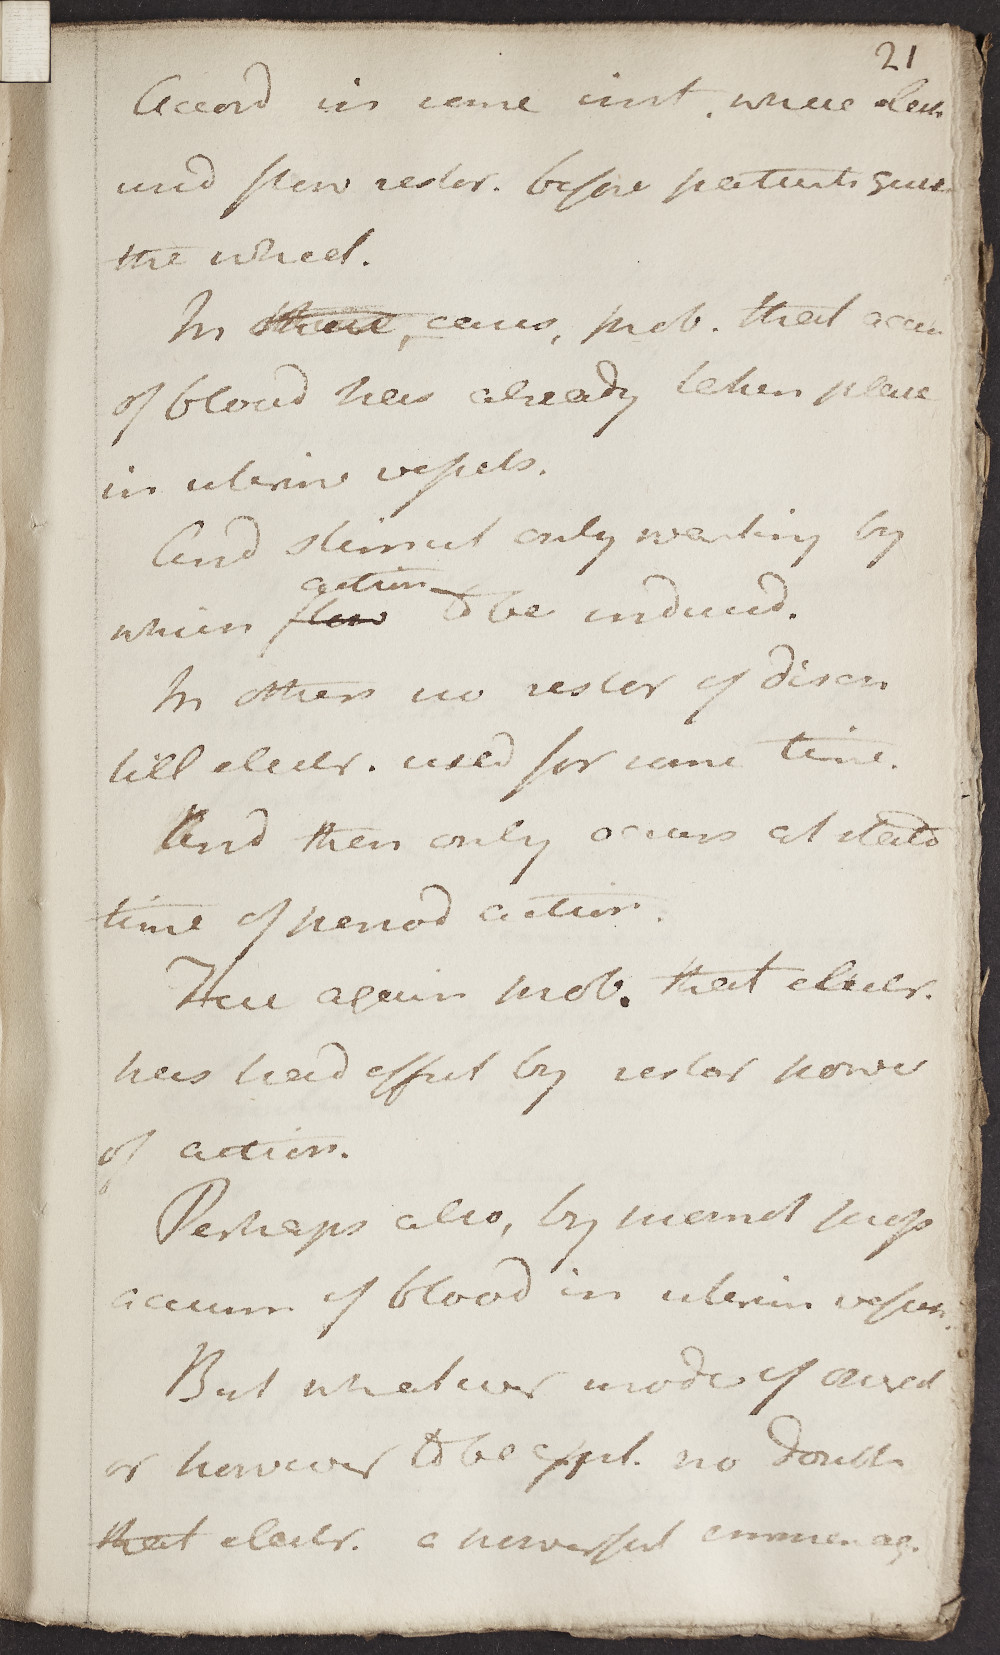 21
Accord in some inst. where elec
used flow restor. before patients quit
the wheel.
In these cases, prob. that accu
of blood has already taken place
in uterine vessels.
And stimul only wanting by
action
which flow to be induced.
In others no restor of disch
till electr. used for some time.
And then only occurs at stated
time of period action.
Here again prob. that electr.
has had effect by restor power
of action.
Perhaps also, by increas
accum of blood in uterin vessels.
But whatever mode of operat
or however to be expl. no doubt
that electr. a powerful emmenag.